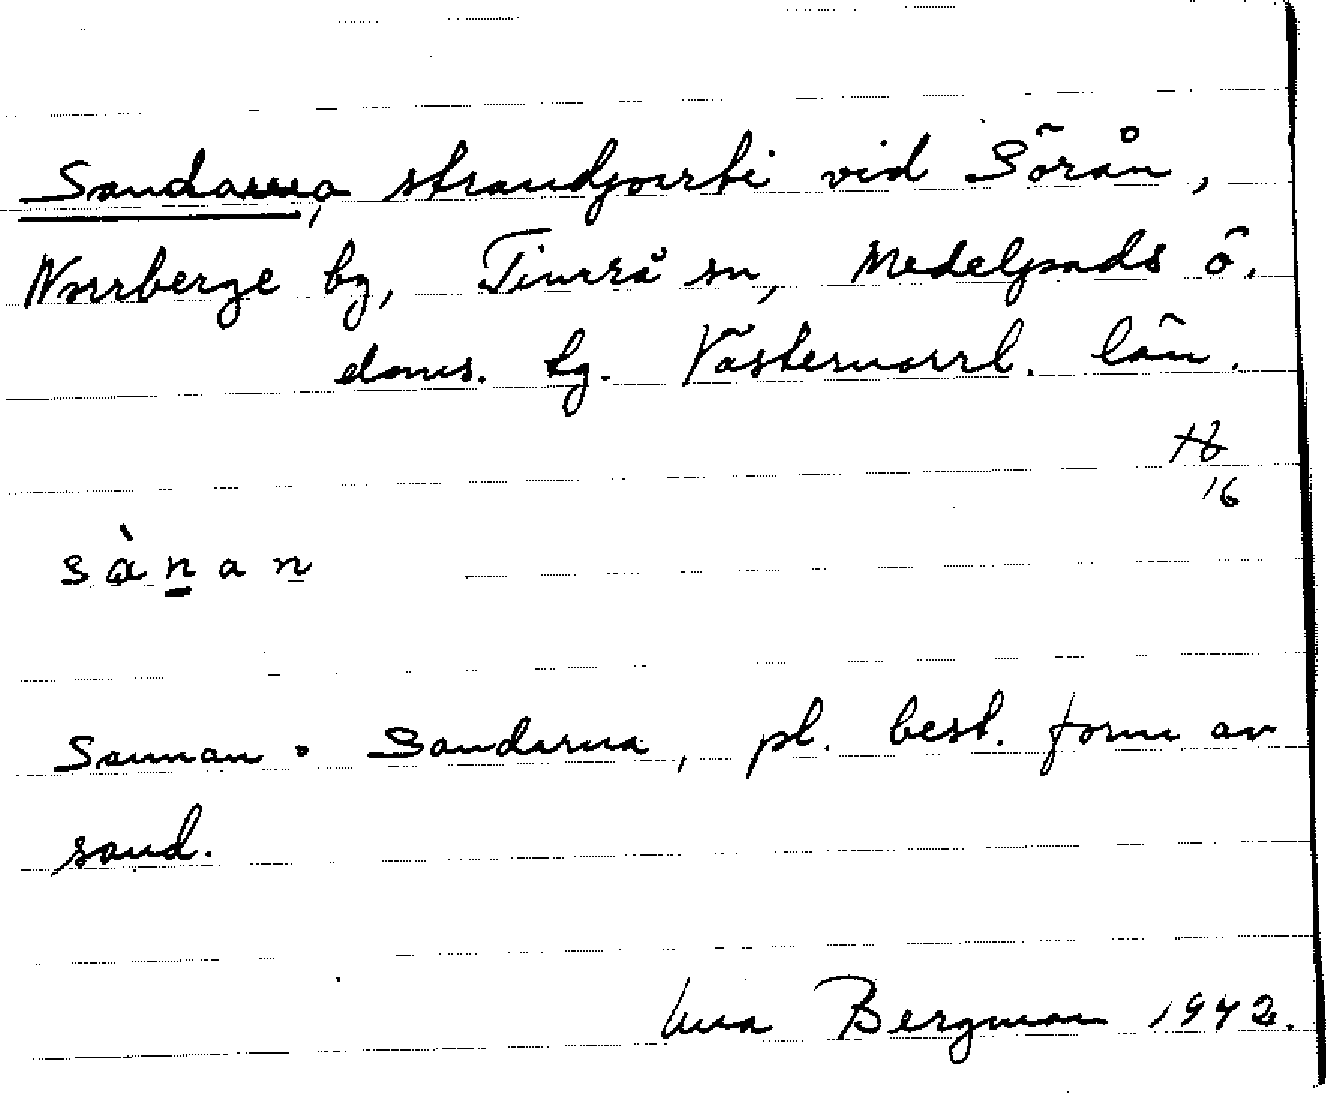 Sandarna, strandparti vid Sörån,
Norrberge by, Timrå sn, Medelpads ö.
doms. tg. Västernorrl. län.
16
sànan
Sannan = Sandarna, pl. best. form av
sand.
Bergman 1942.